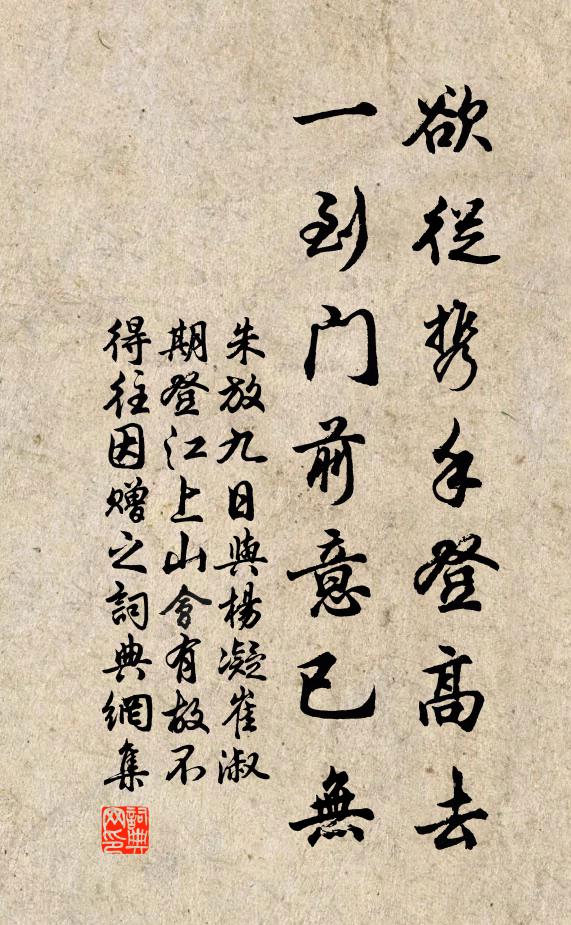 欲從携手登高去
一到門前意已無
朱放九日與楊凝崔淑
期登江上山會有故不
得往因贈之詞典網集
詞典
网印